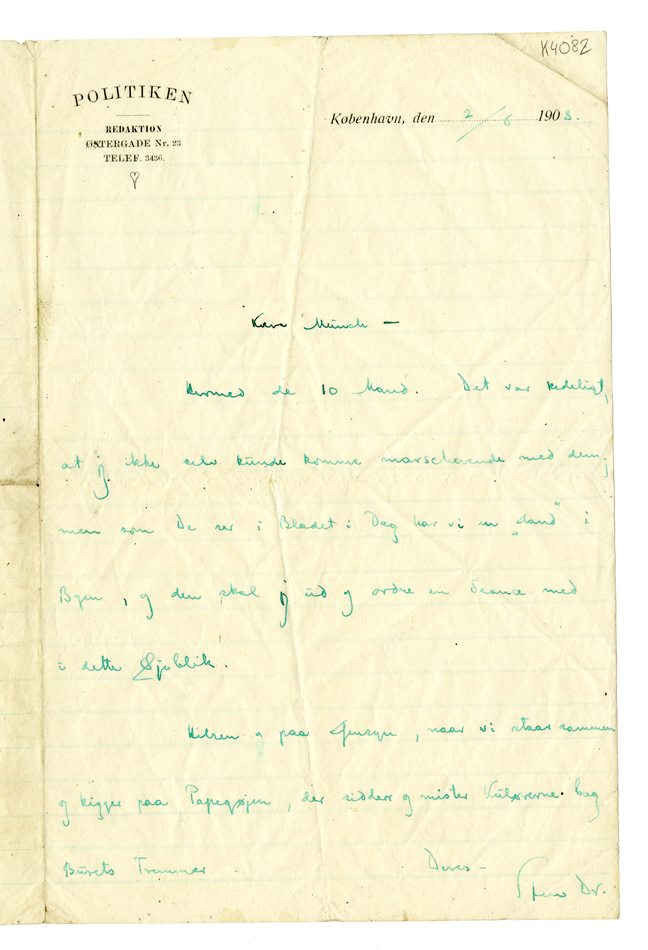 K4082
POLITIKEN
REDAKTION
ØSTERGADE Nr. 23
TELEF. 3436.
København, den 2/6 1908.
Kære Munch –
Hermed de 10 Mand. Det var kedeligt,
at jeg ikke selv kunde komme marscherende med dem;
men som De ser i Bladet i Dag har vi en „Aand" i
Byen, og den skal jeg ud og ordne en Seance med
i dette Øjeblik.
Hilsen og paa Gensyn, naar vi staar sammen
og kigger paa Papegøjen, der sidder og mister Kulørerne bag
Burets Tremmer.
Deres –
Dr.